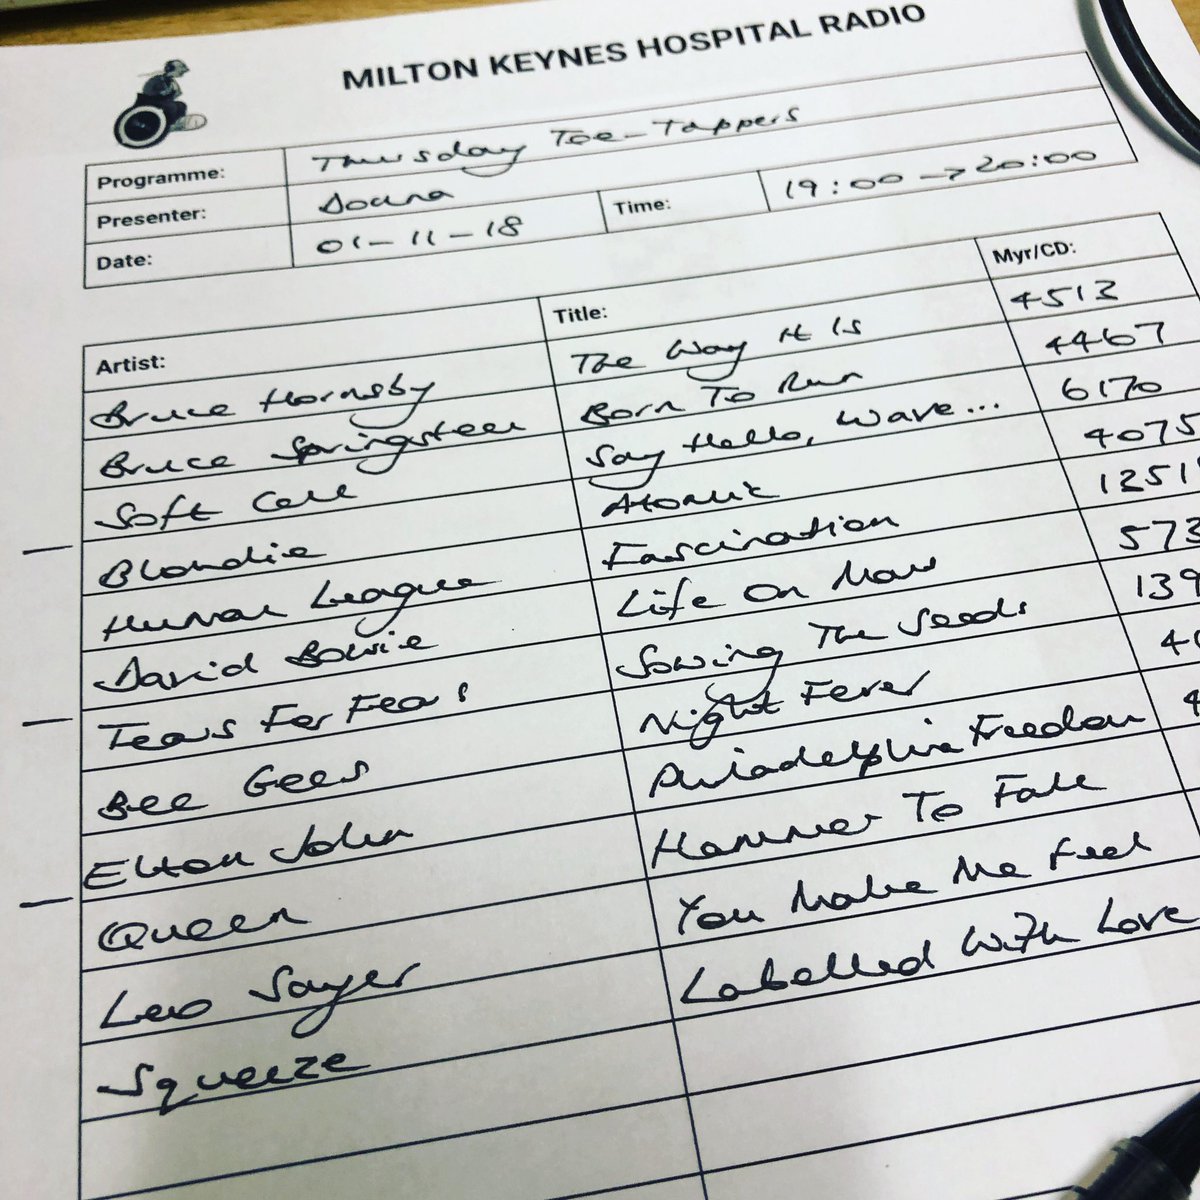 MILTON KEYNES HOSPITAL RADIO
Programme: Thursday Toe-Tappers
Presenter:
Date: 01-11-18 Time: 19:00 → 20:00
Artist: Title: Myr/CD:
Bruce Hornsby The Way It Is 4513
Bruce Springsteen Born To Run 4467
Soft Cell Say Hello, Wave... 6170
Blondie Atomic 4075
Human League Fascination 1251
David Bowie Life On Mars 573
Tears For Fears Sowing The Seeds 139
Bee Gees Night Fever
Elton John Philadelphia Freedom 4
Queen Hammer To Fall
Leo Sayer You Make Me Feel
Squeeze Labelled With Love